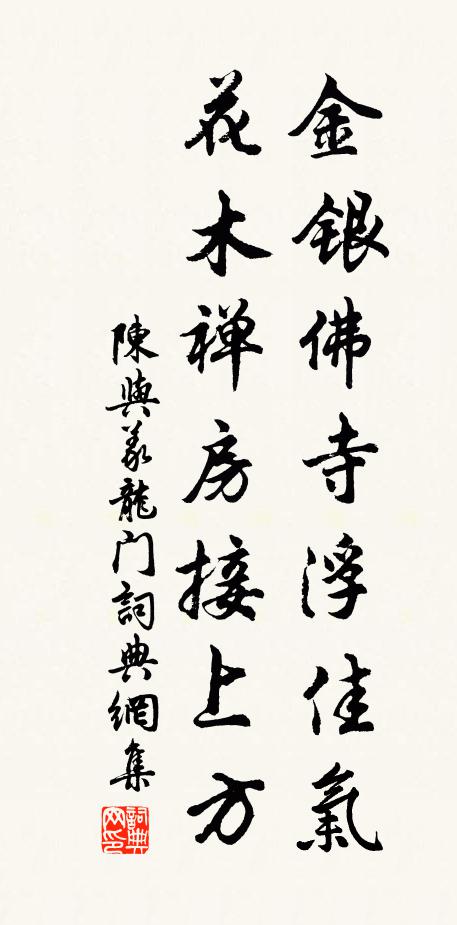 金銀佛寺浮佳氣
花木禅房接上方
陳與義龍门詞典網集
詞典网印